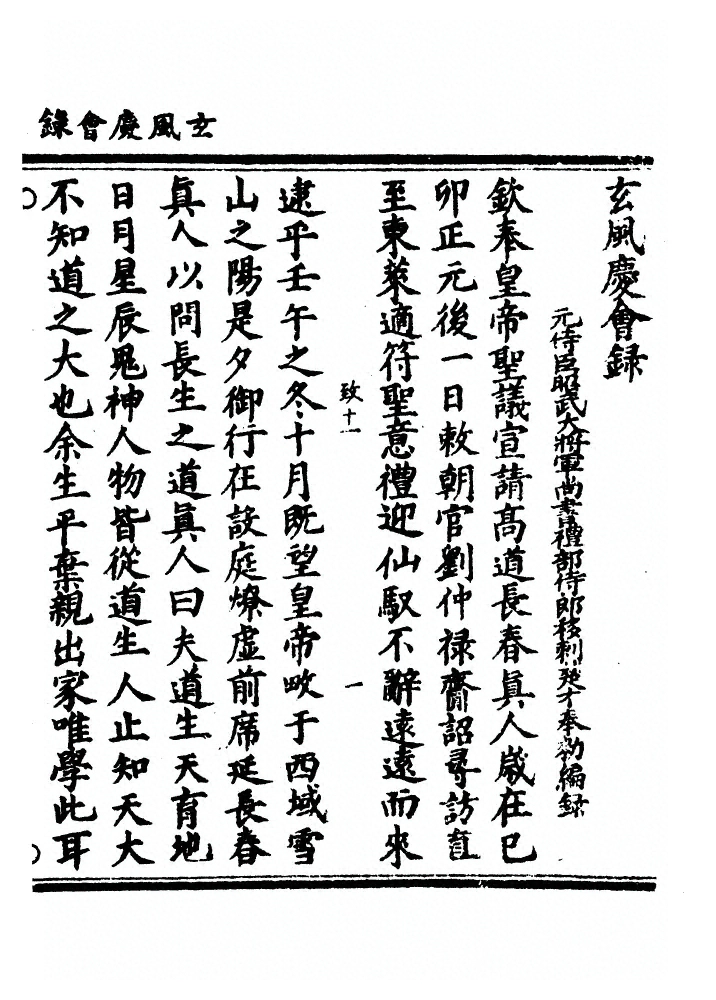 玄風慶會錄
玄風慶會録
元侍臣昭武大將軍尚書禮部侍郎移剌楚才奉勑編録
欽奉皇帝聖議宣請高道長春眞人歲在已
卯正元後一日敕朝官劉仲禄齎詔尋訪直
至東萊適符聖意禮迎仙馭不辭遠遠而來
致十一
一
逮乎壬午之冬十月既望皇帝畋于西域雪
山之陽是夕御行在設庭燎虛前席延長春
眞人以問長生之道眞人曰夫道生天育地
日月星辰鬼神人物皆從道生人止知天大
不知道之大也余生平棄親出家唯學此耳